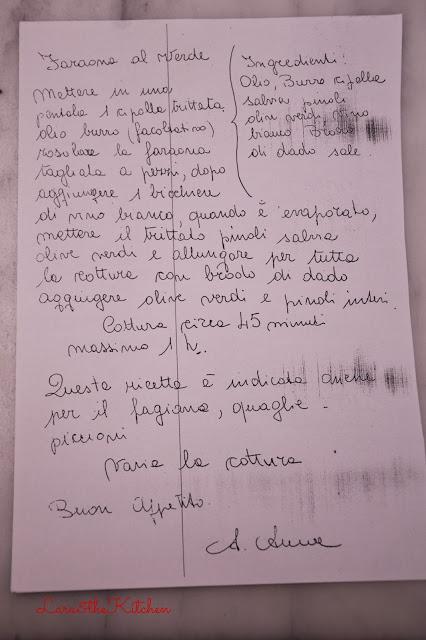 Faraona al Verde
Mettere in una
pentola 1 cipolla trittata
olio burro (facoltativo)
rosolare la faraona
tagliata a pezzi, dopo
aggiungere 1 bicchiere
di vino bianco, quando è evaporato,
mettere il trittato pinoli salvia
olive verdi e allungare per tutta
la cottura con brodo di dado
aggiungere olive verdi e pinoli interi.
Cottura circa 45 minuti
massimo 1 h.
Questa ricetta è indicata anche
per il fagiano, quaglie -
piccioni
Varia la cottura
Buon Appetito.
A. Anna
Ingredienti:
Olio, Burro cipolla
salvia pinoli
olive verdi, vino
bianco Brodo
di dado sale.
Lara&theKitchen